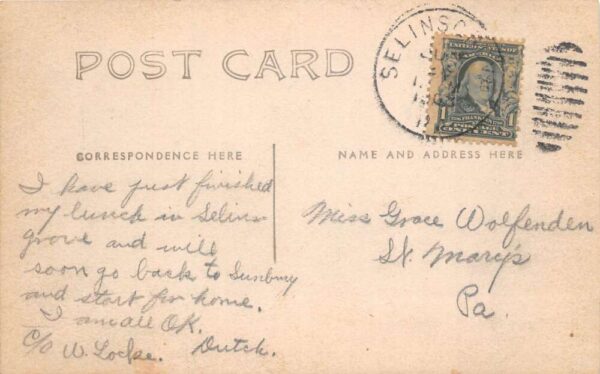 POST CARD
SELINSG
JU
1
UNITED STATES OF
FRANKLIN
1 POSTAGE 1
ONE CENT
CORRESPONDENCE HERE
NAME AND ADDRESS HERE
I have just finished
my lunch in Selins-
grove and will
soon go back to Sunbury
and start for home.
I am all OK.
C/o W. Locke. Dutch.
Miss Grace Wolfenden
St. Mary's
Pa.